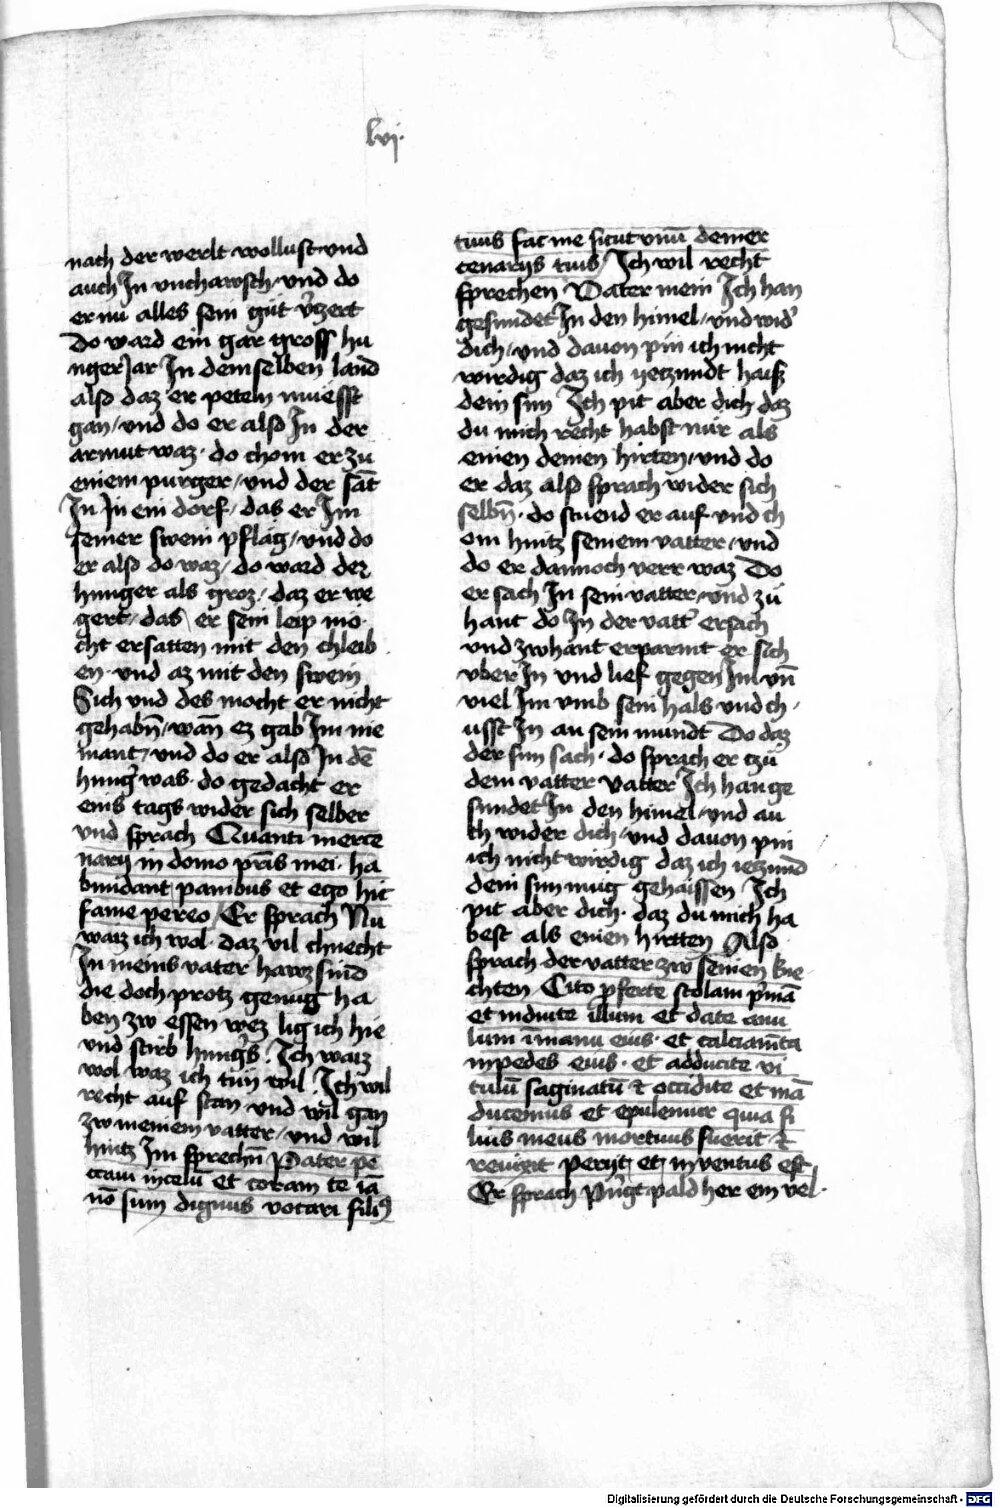 lvi.
nach der werlt wollust und
auch In unchawsch / und do
er nu alles sein gut v̉zert
Do ward ein gar gross hu
nger Jar In demselben land
also daz er peteln muesst
gan / und do er also In der
armut waz · do chom er zu
einem purger / und der sāt
In In ein dorf / das er Im
seiner swein pflag / und do
er also do waz / do ward der
hunger als groz / daz er we
gert / das er sein leip mo
cht ersatten mit den chleib
en · und az mit den swein
Sich und des mocht er nicht
gehabn̄ / wān ez gab Im nie
mant / und do er also In dē
hung̉ was · do gedacht er
eins tags wider sich selber
und sprach Quanti merce
narij in domo pr̄is mei · ha
bundant panibus et ego hic
fame pereo / Er sprach Nu
waiz ich wol · daz vil chnecht
In meins vater hawz sind
die doch protz genug ha
ben zw essen wez lig ich hie
und stirb hung̉s · Ich waiz
wol waz ich tun wil Ich wil
recht auf stan und wil gan
zw meinem vatter / und wil
hintz Im sprechn̄ Pater pe
ccavi in celū et coram te iā
nō sum dignus vocari filiꝰ
tuus fac me sicut unū de mer
cenarijs tuis / Ich wil recht
sprechen Vater mein Ich han
gesundet In den himel / und wid̉
dich / und davon pin ich nicht
wirdig daz ich yetzundt haiss
dein sun Ich pit aber dich daz
du mich recht habst nur als
einen deinen hirten / und do
er daz also sprach wider sich
selbn̄ · do stuend er auf und ch
om hintz seinem vatter / und
do er dannoch verr waz Do
er sach In sein vatter / und zu
hant do In der vatt̉ ersach
und zwhant erparmt er sich
uber In und lief gegen Im un̄
viel Im umb sein hals und ch
usst In an sein mundt Do daz
der sun sach · do sprach er tzu
dem vatter Vatter Ich han ge
sundet In den himel / und au
ch wider dich / und davon pin
ich nicht wirdig daz ich ietzund
dein sun mug gehaissen Ich
pit aber dich · daz du mich ha
best als einen hirtten Also
sprach der vatter zw seinen kne
chten Cito p̲ferte stolam p̉mā
et induite illum et date anu
lum ī manu eius · et calciam̄ta
in pedes eius · et adducite vi
tulū saginatū ⁊ occidite et mā
ducemus et epulemur quia fi
lius meus mortuus fuerit ⁊
revixit perijt et inventus est
Er sprach P̉ngt pald her ein vel